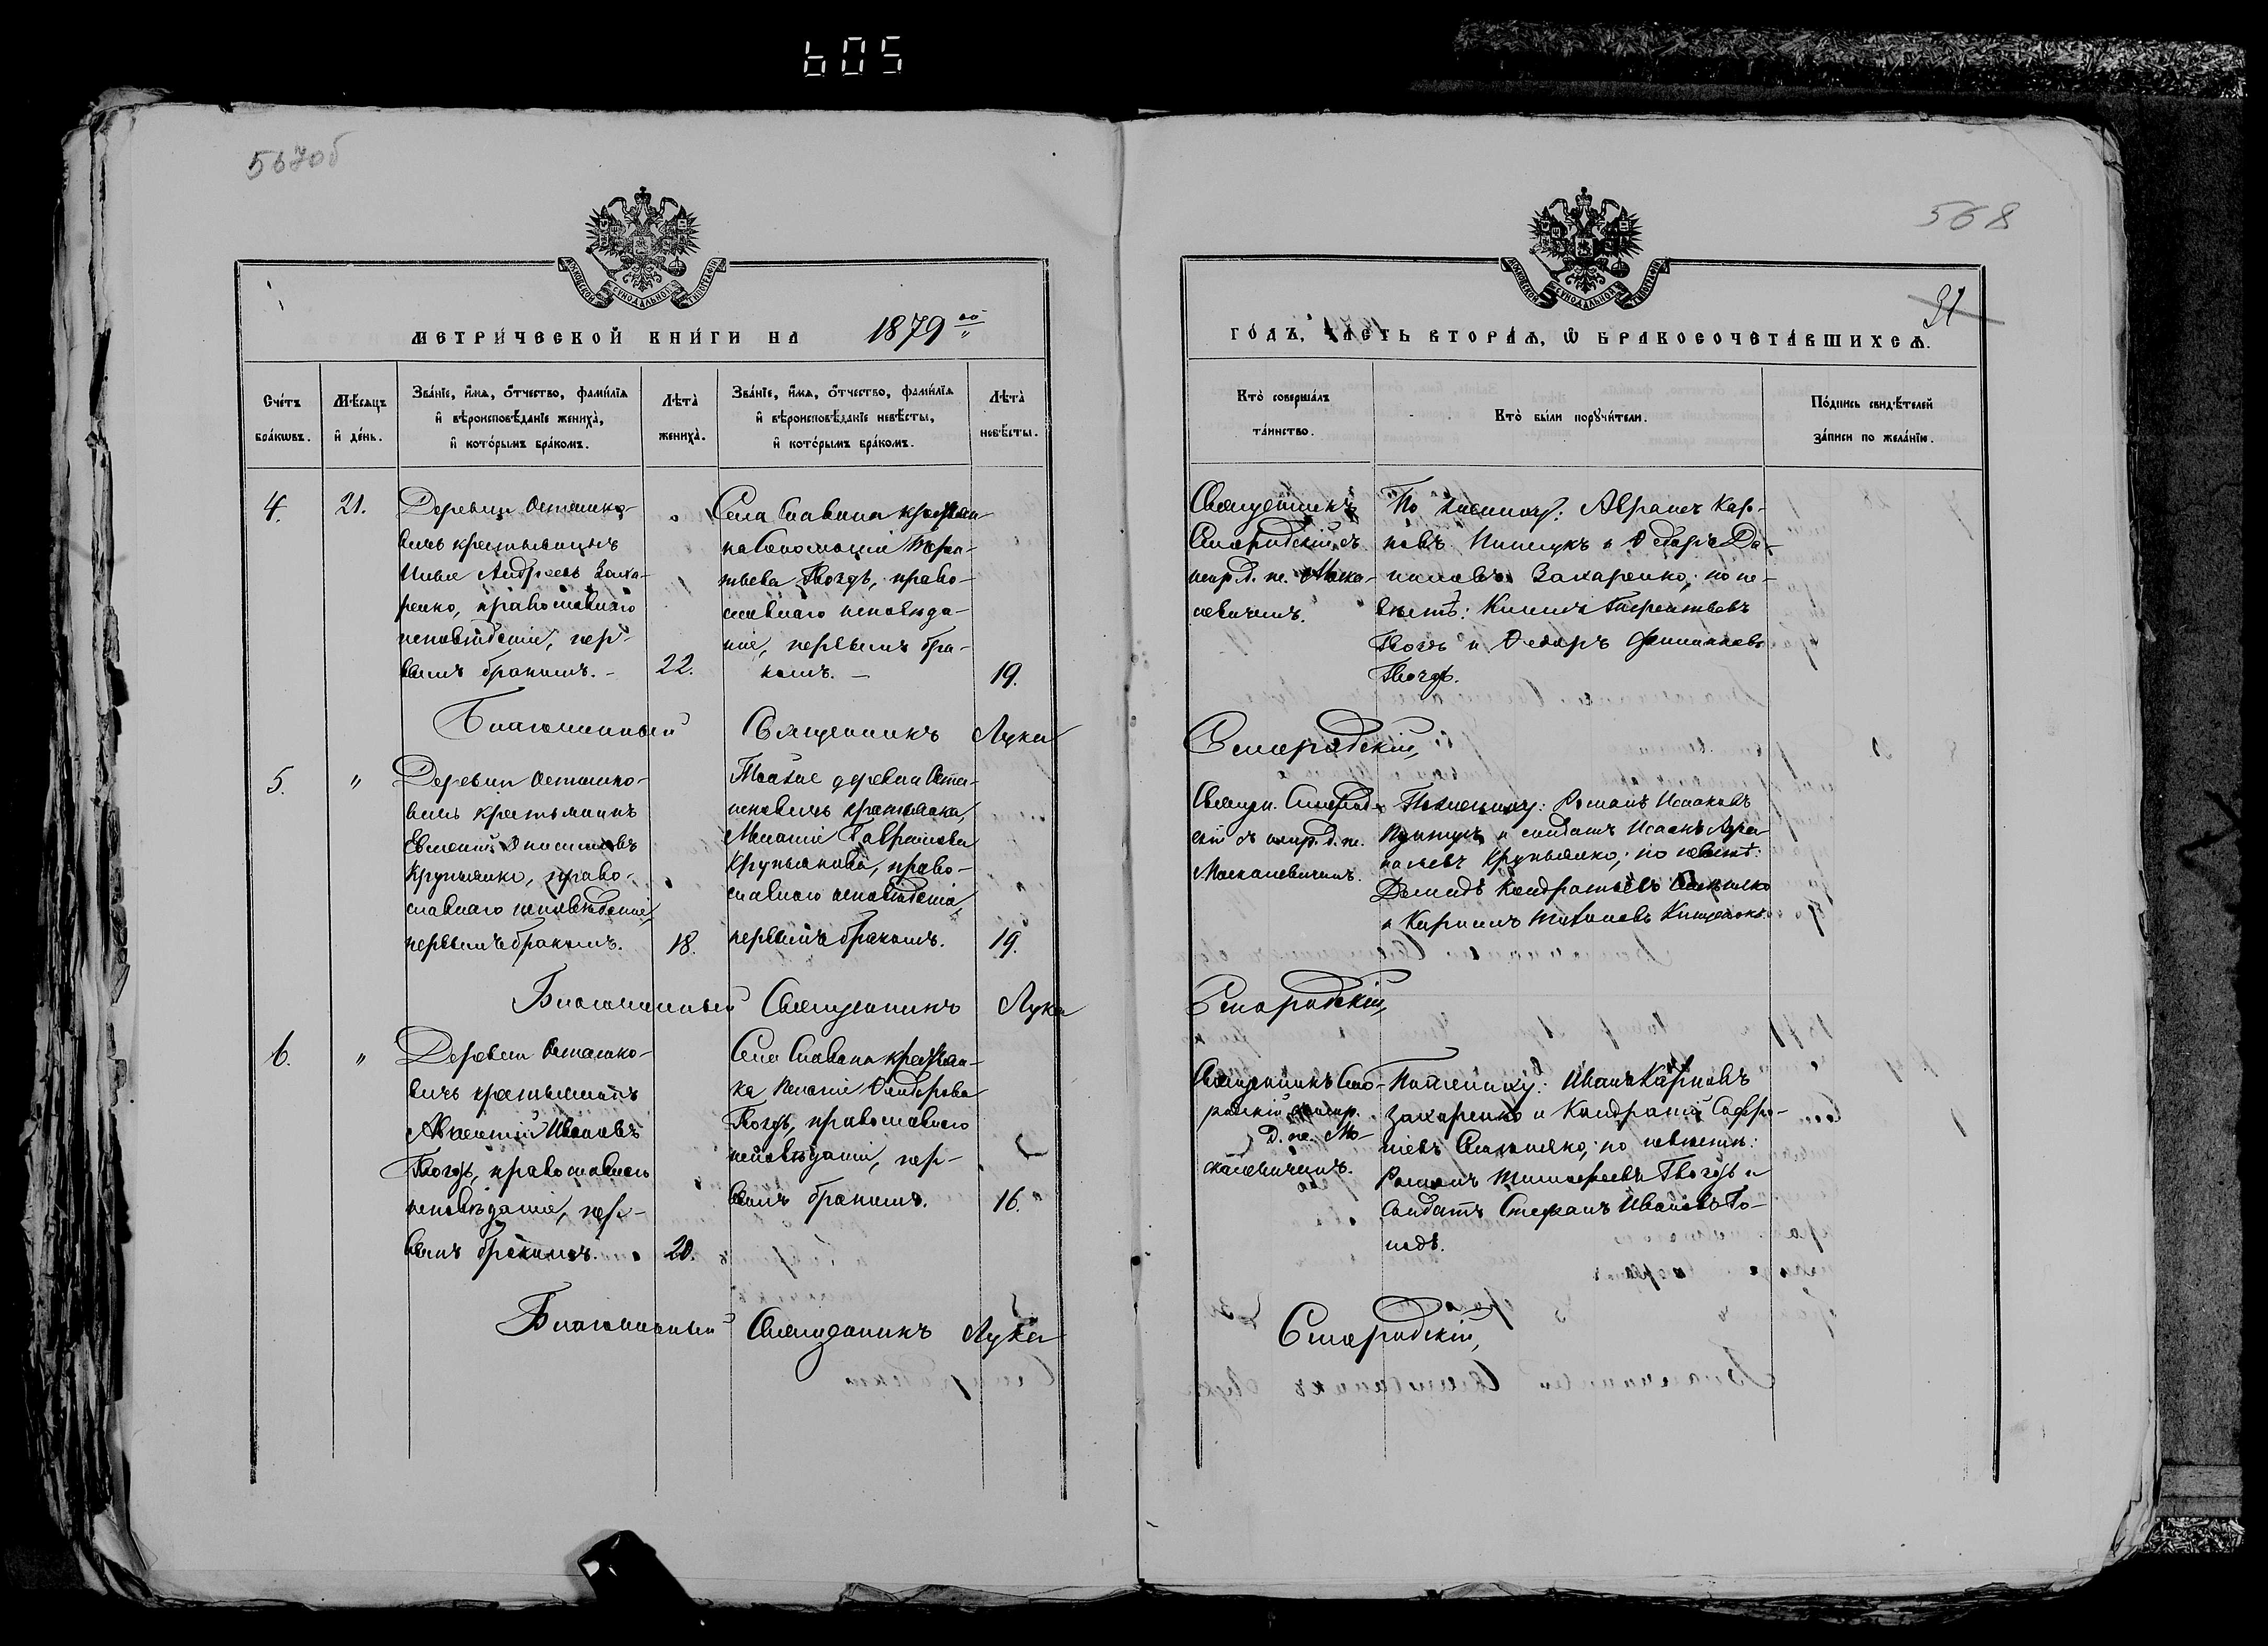 605
567об
568
31
МОСКОВСКОЙ СѴНОДАЛЬНОЙ ТИПОГРАФІИ
МОСКОВСКОЙ СѴНОДАЛЬНОЙ ТИПОГРАФІИ
МЕТРИ́ЧЕСКОЙ КНИ́ГИ НА 1879 ой
ГО́ДЪ, ЧА́СТЬ ВТОРА́Я, Ѡ БРАКОСОЧЕТА́ВШИХСЯ.
Сче́тъ бра́кωвъ.
Мѣ́сяцъ и҆ де́нь.
Зва́нїе, и҆́мя, ѻ҆́тчество, фами́лїя и҆ вѣроисповѣ́данїе жениха̀, и҆ кото́рымъ бра́комъ.
Лѣ́та̀ жениха̀.
Зва́нїе, и҆́мя, ѻ҆́тчество, фами́лїя и҆ вѣроисповѣ́данїе невѣ́сты, и҆ кото́рымъ бра́комъ.
Лѣ́та̀ невѣ́сты.
Кто̀ соверша́лъ та́инство.
Кто̀ бы́ли порꙋчи́тели.
По́дпись свидѣ́телей за́писи по жела́нїю.
4.
21.
Деревни Осташко-
вичь крестьянинъ
Илья Андреевъ Заха-
ренко, православнаго
исповѣданія, пер-
вымъ бракомъ.
22.
Села Славина крестьян-
ка Соломонія Терен-
тьева Гвоздь, право-
славнаго исповѣда-
нія, первымъ бра-
комъ.
19.
Священникъ
Смородскій съ
испр. д. пс. Моска-
левичемъ.
По жениху: Аврамъ Кар-
повъ Пинчукъ и Ѳедоръ Да-
ниловъ Захаренко; по не-
вѣстѣ: Терентьевъ
Гвоздь и Ѳедоръ
Гвоздь.
Благочинный Священникъ Лука Смородскій,
5.
"
Деревни Осташко-
вичь крестьянинъ
Евменій
Крупьянко, право-
славнаго исповѣданія,
первымъ бракомъ.
18.
Той же деревни Оста-
шковичь крестьянка,
Меланія Гаврилова
Крупьянкова, право-
славнаго исповѣданія,
первымъ бракомъ.
19.
Священ. Смород-
скій съ испр. д. пс.
Москалевичемъ.
По жениху: Романъ Исааковъ
и солдатъ Исаакъ
Крупьянко; по невѣстѣ:
Демидъ Кондратьевъ
и Кириллъ
Благочинный Священникъ Лука Смородскій,
6.
"
Деревни Осташко-
вичь крестьянинъ
Авксентій Ивановъ
Гвоздь, православнаго
исповѣданія, пер-
вымъ бракомъ.
20.
Села Славина крестьян-
ка Пелагія Ѳедорова
Гвоздь, православнаго
исповѣданія, пер-
вымъ бракомъ.
16.
Священникъ Смо-
родскій съ испр.
д. пс. Мо-
скалевичемъ.
По жениху: Иванъ Карповъ
Захаренко и Кондратій Софро-
по невѣстѣ:
Романъ Тимофеевъ Гвоздь и
Солдатъ Стефанъ Ивановъ Го-
Благочинный Священникъ Лука Смородскій,